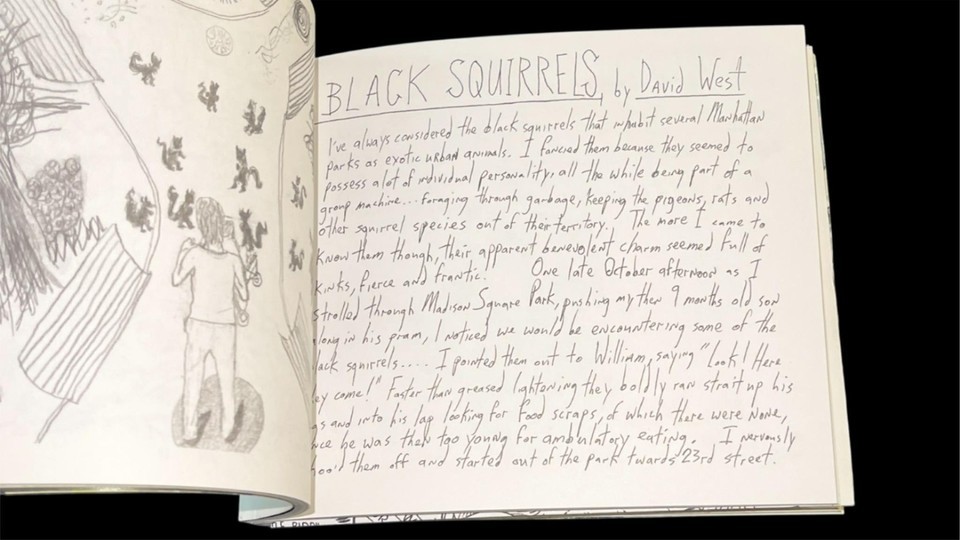 BLACK SQUIRRELS, by David West
I've always considered the black squirrels that inhabit several Manhattan
parks as exotic urban animals. I fancied them because they seemed to
possess a lot of individual personality, all the while being part of a
group machine... foraging through garbage, keeping the pigeons, rats and
other squirrel species out of their territory. The more I came to
know them though, their apparent benevolent charm seemed full of
kinks, fierce and frantic. One late October afternoon as I
strolled through Madison Square Park, pushing my then 9 months old son
along in his pram, I noticed we would be encountering some of the
lack squirrels.... I pointed them out to William, saying "Look! Here
ey come!" Faster than greased lightening they boldly ran strait up his
gs and into his lap looking for food scraps, of which there were none,
nce he was then too young for ambulatory eating. I nervously
hoo'd them off and started out of the park twards 23rd street.